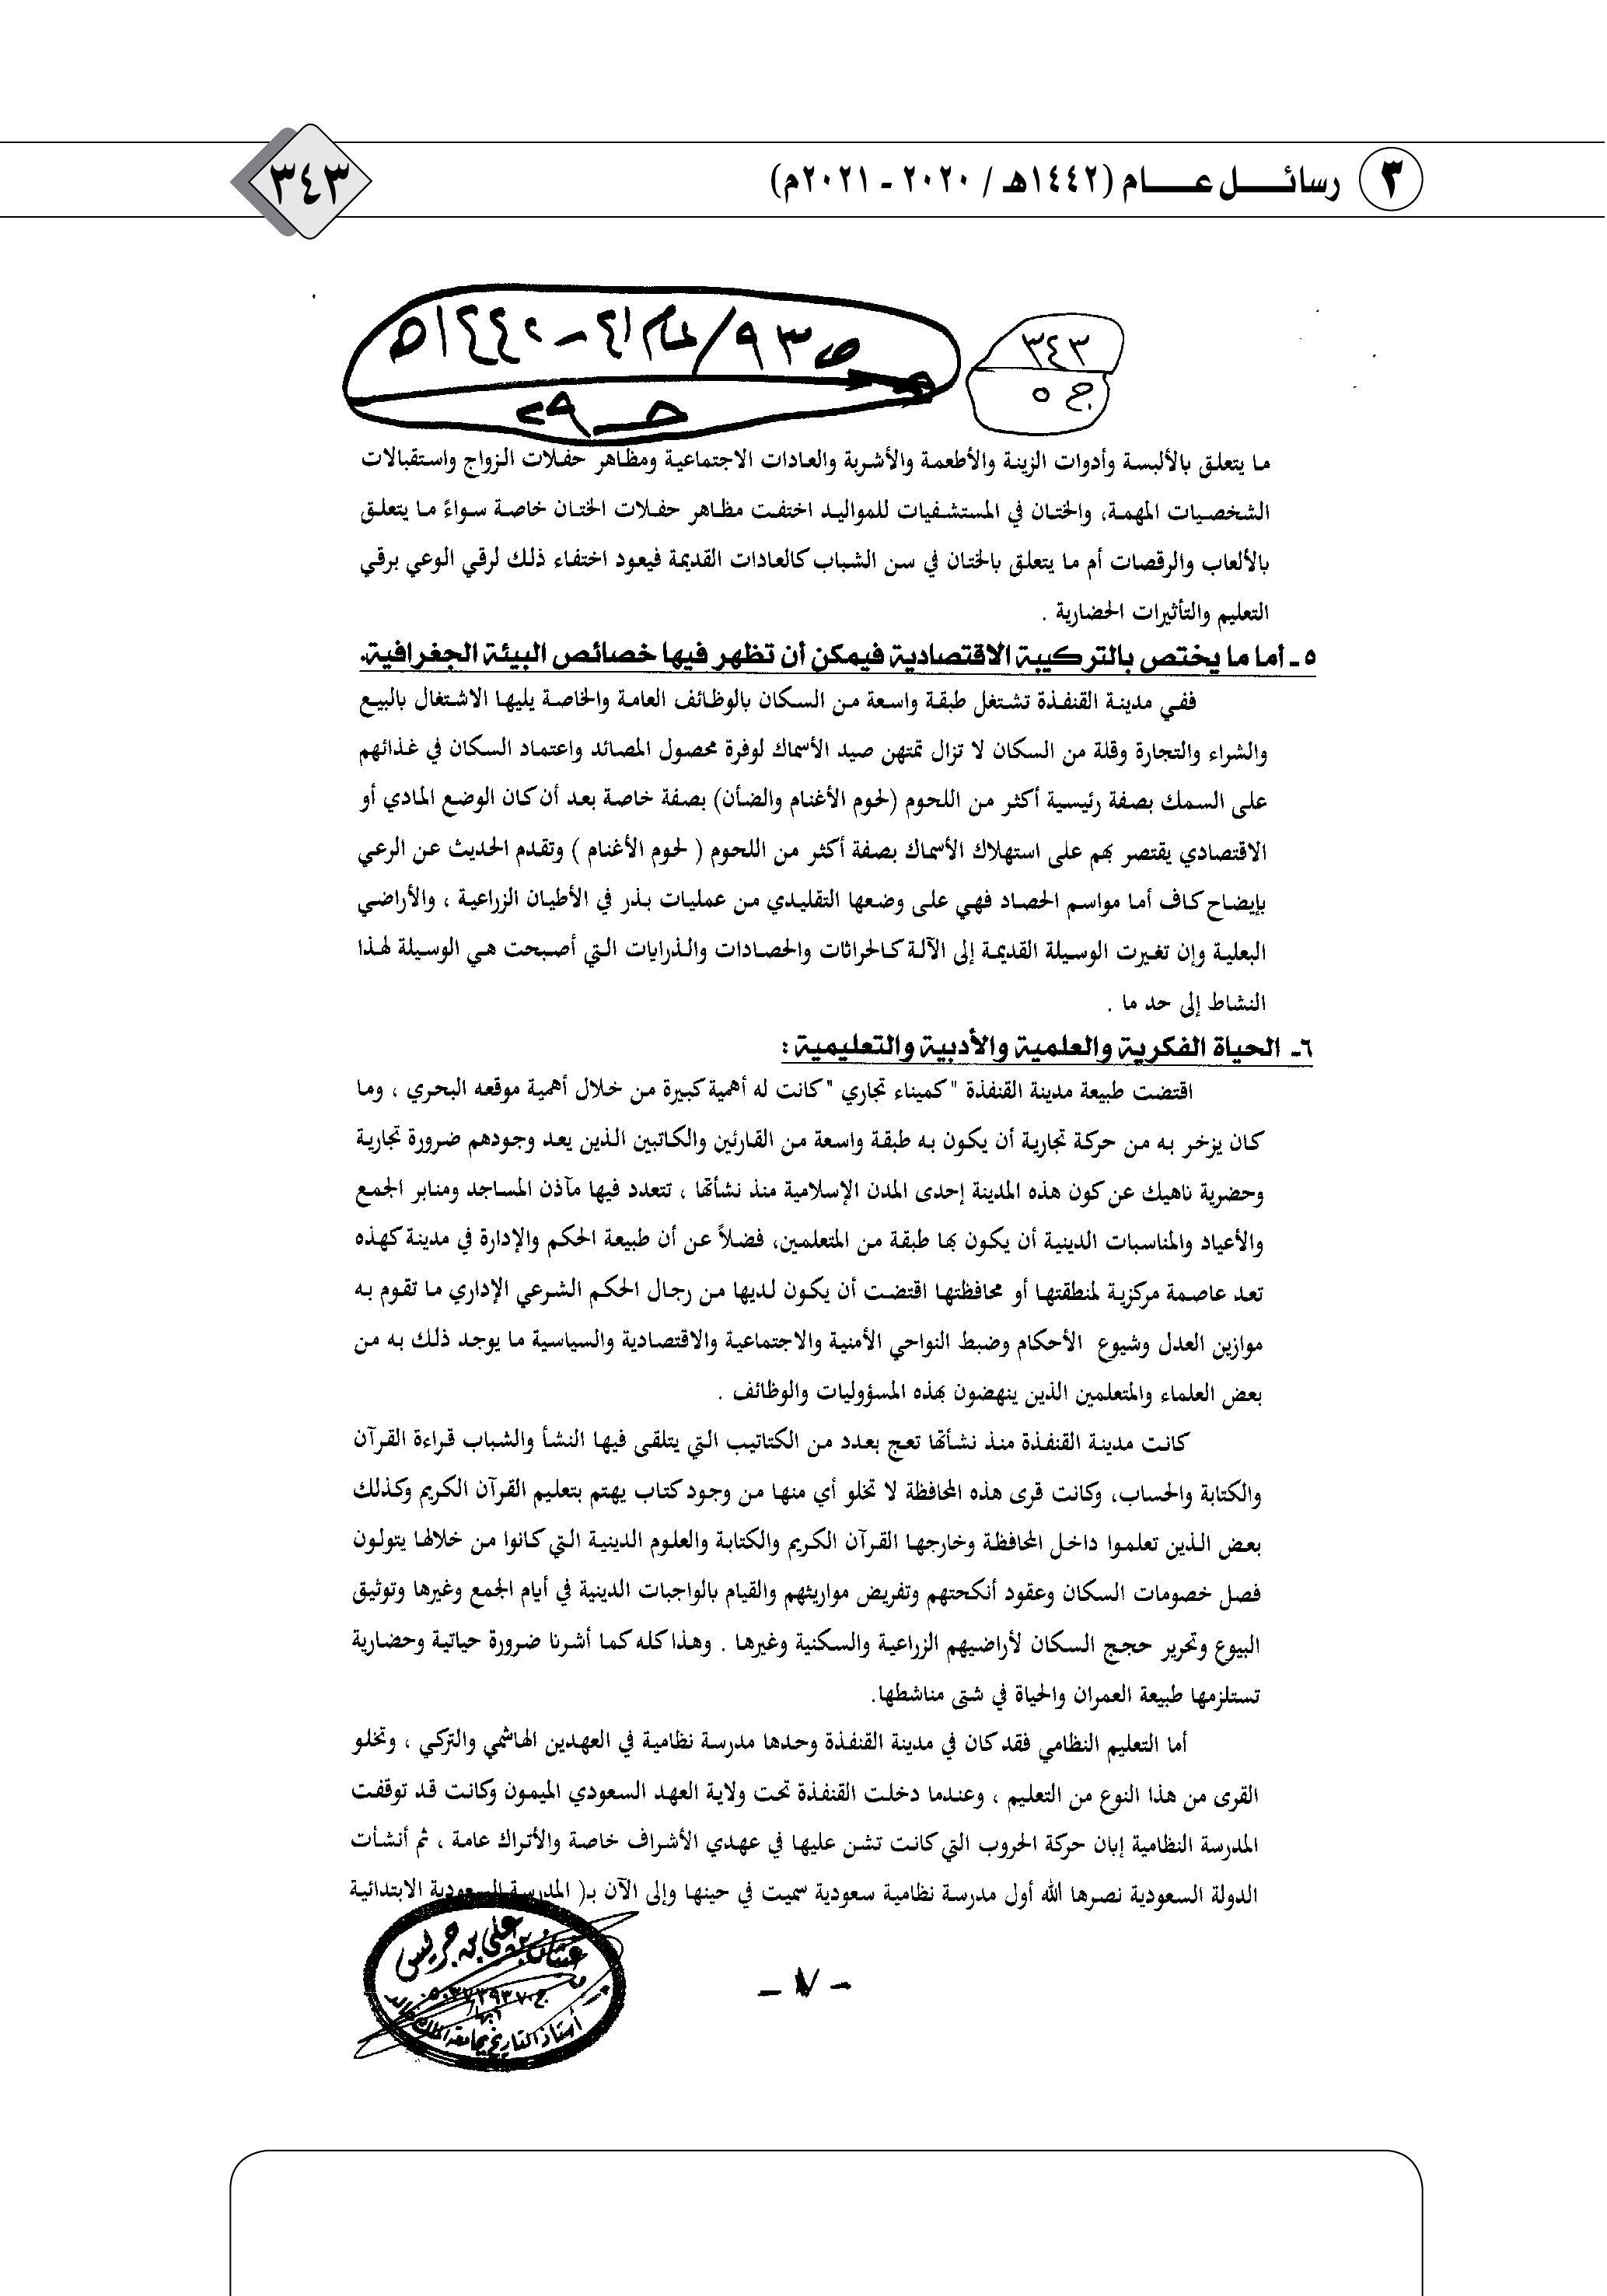 ٣ رسائــــل عــــام (١٤٤٢هـ / ٢٠٢٠ - ٢٠٢١م)
٣٤٣
٣٤٣
ج ٥
ص ٩٣/ عام ٤١ - ١٤٤٠هـ
حـ ٢٩
ما يتعلق بالألبسة وأدوات الزينة والأطعمة والأشربة والعادات الاجتماعية ومظاهر حفلات الزواج واستقبالات
الشخصيات المهمة، والختان في المستشفيات للمواليد اختفت مظاهر حفلات الختان خاصة سواءً ما يتعلق
بالألعاب والرقصات أم ما يتعلق بالختان في سن الشباب كالعادات القديمة فيعود اختفاء ذلك لرقي الوعي برقي
التعليم والتأثيرات الحضارية .
٥ ـ أما ما يختص بالتركيبة الاقتصادية فيمكن أن تظهر فيها خصائص البيئة الجغرافية.
ففي مدينة القنفذة تشتغل طبقة واسعة من السكان بالوظائف العامة والخاصة يليها الاشتغال بالبيع
والشراء والتجارة وقلة من السكان لا تزال تمتهن صيد الأسماك لوفرة محصول المصائد واعتماد السكان في غذائهم
على السمك بصفة رئيسية أكثر من اللحوم (لحوم الأغنام والضأن) بصفة خاصة بعد أن كان الوضع المادي أو
الاقتصادي يقتصر بهم على استهلاك الأسماك بصفة أكثر من اللحوم ( لحوم الأغنام ) وتقدم الحديث عن الرعي
بإيضاح كاف أما مواسم الحصاد فهي على وضعها التقليدي من عمليات بذر في الأطيان الزراعية ، والأراضي
البعلية وإن تغيرت الوسيلة القديمة إلى الآلة كالحراثات والحصادات والذرايات التي أصبحت هي الوسيلة لهذا
النشاط إلى حد ما .
٦ـ الحياة الفكرية والعلمية والأدبية والتعليمية :
اقتضت طبيعة مدينة القنفذة "كميناء تجاري "كانت له أهمية كبيرة من خلال أهمية موقعه البحري ، وما
كان يزخر به من حركة تجارية أن يكون به طبقة واسعة من القارئين والكاتبين الذين يعد وجودهم ضرورة تجارية
وحضرية ناهيك عن كون هذه المدينة إحدى المدن الإسلامية منذ نشأتها ، تتعدد فيها مآذن المساجد ومنابر الجمع
والأعياد والمناسبات الدينية أن يكون بها طبقة من المتعلمين، فضلاً عن أن طبيعة الحكم والإدارة في مدينة كهذه
تعد عاصمة مركزية لمنطقتها أو محافظتها اقتضت أن يكون لديها من رجال الحكم الشرعي الإداري ما تقوم به
موازين العدل وشيوع الأحكام وضبط النواحي الأمنية والاجتماعية والاقتصادية والسياسية ما يوجد ذلك به من
بعض العلماء والمتعلمين الذين ينهضون بهذه المسؤوليات والوظائف .
كانت مدينة القنفذة منذ نشأتها تعج بعدد من الكتاتيب التي يتلقى فيها النشأ والشباب قراءة القرآن
والكتابة والحساب، وكانت قرى هذه المحافظة لا تخلو أي منها من وجود كتاب يهتم بتعليم القرآن الكريم وكذلك
بعض الذين تعلموا داخل المحافظة وخارجها القرآن الكريم والكتابة والعلوم الدينية التي كانوا من خلالها يتولون
فصل خصومات السكان وعقود أنكحتهم وتفريض مواريثهم والقيام بالواجبات الدينية في أيام الجمع وغيرها وتوثيق
البيوع وتحرير حجج السكان لأراضيهم الزراعية والسكنية وغيرها . وهذا كله كما أشرنا ضرورة حياتية وحضارية
تستلزمها طبيعة العمران والحياة في شتى مناشطها.
أما التعليم النظامي فقد كان في مدينة القنفذة وحدها مدرسة نظامية في العهدين الهاشمي والتركي ، وتخلو
القرى من هذا النوع من التعليم ، وعندما دخلت القنفذة تحت ولاية العهد السعودي الميمون وكانت قد توقفت
المدرسة النظامية إبان حركة الحروب التي كانت تشن عليها في عهدي الأشراف خاصة والأتراك عامة ، ثم أنشأت
الدولة السعودية نصرها الله أول مدرسة نظامية سعودية سميت في حينها وإلى الآن بـ( المدرسة السعودية الابتدائية
بن علي بن جريس
أستاذ التاريخ بجامعة الملك خالد